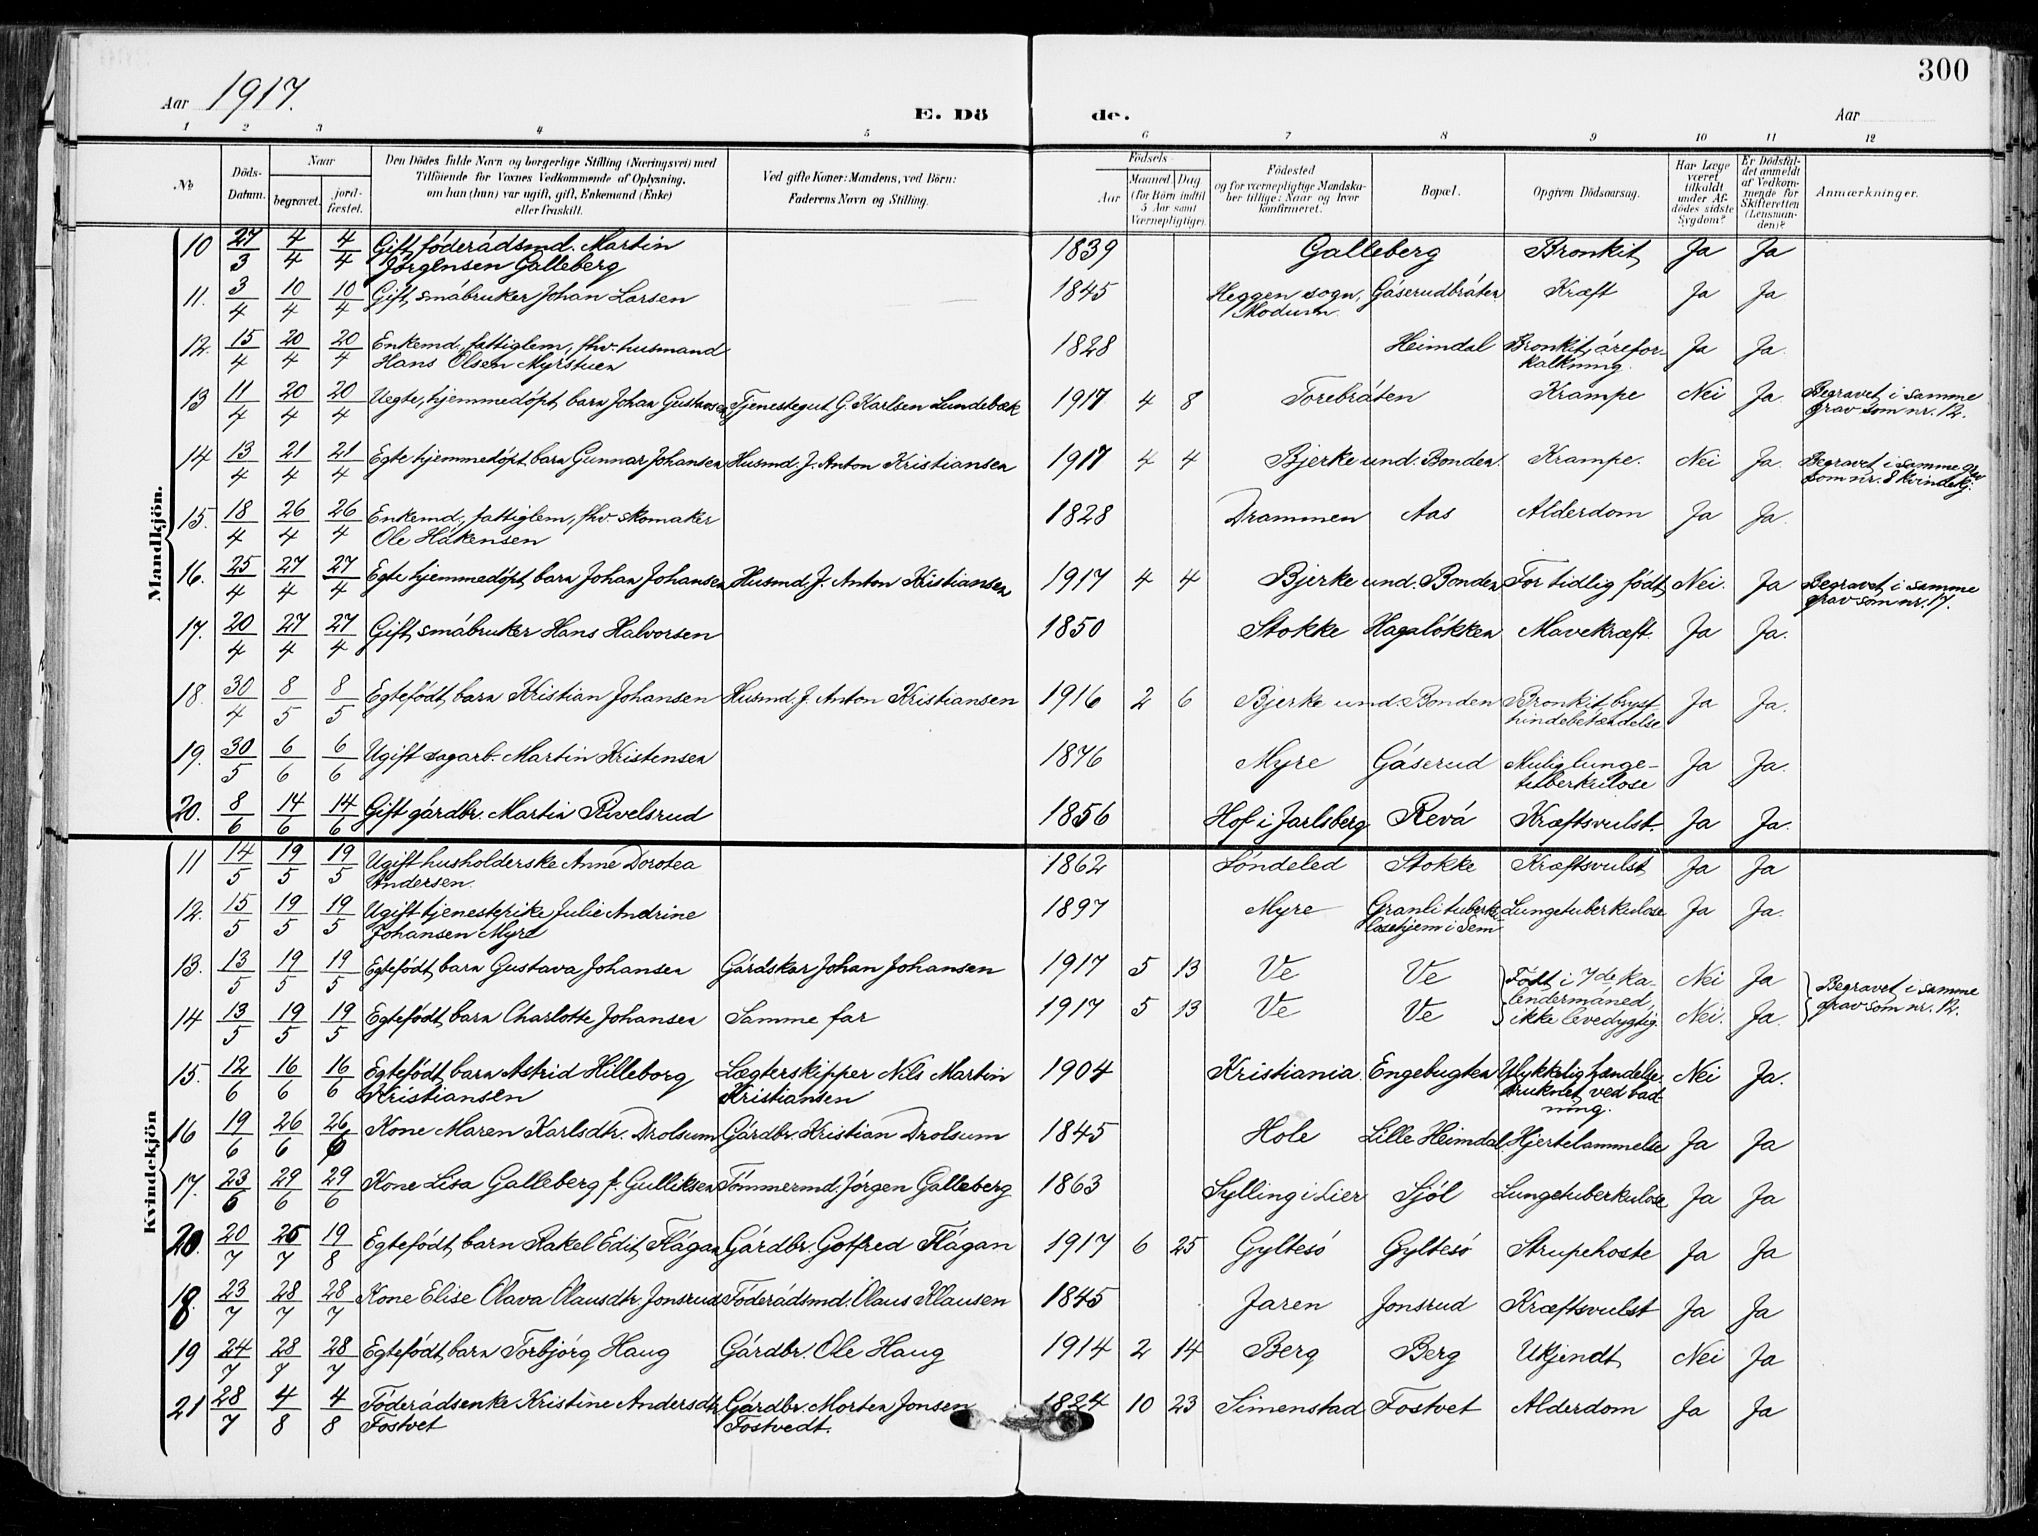 300
Aar 1917.
E. Dö de.
Aar
1 2 3 4 5 6 7 8 9 10 11 12
№
Döds-Datum.
Naar
begravet.
jord-fæstet.
Den Dödes fulde Navn og borgerlige Stilling (Næringsvei) med
Tilföiende for Voxnes Vedkommende af Oplysning,
om han (hun) var ugift, gift, Enkemand (Enke)
eller fraskilt.
Ved gifte Koner: Mandens, ved Börn:
Faderens Navn og Stilling.
Födsels-
Aar
Maaned Dag
(for Börn indtil
5 Aar samt
Værnepligtige).
Födested
og for værnepligtige Mandska-
ber tillige: Naar og hvor
konfirmeret.
Bopæl.
Opgiven Dödsaarsag.
Har Læge
været
tilkaldt
under Af-
dödes sidste
Sygdom?
Er Dödsfal-
det anmeldt
af Vedkom-
mende for
Skifteretten
(Lensman-
den)?
Anmærkninger.
Mandkjön.
10 27/3 4/4 4/4 Gift föderådsmd. Martin 1839 Galleberg Bronkit Ja Ja
Jørgensen Galleberg
11. 3/4 10/4 10/4 Gift, småbruker Johan Larsen 1845 Heggen sogn, Gåserudbråten Kræft Ja Ja
Modum
12. 15/4 20/4 20/4 Enkemd., fattiglem, fhv. husmand 1828 Heimdal Bronkit, årefor- Ja Ja.
Hans Olsen Myrstuen kalkning.
13 11/4 20/4 20/4 Uegte, hjemmedöpt barn Johan Gustavsen Tjenestegut G. Karlsen Lundebæk 1917 4 8 Torebråten Krampe Nei Ja. Begravet i samme
grav som nr. 12.
14 13/4 21/4 21/4 Egte hjemmedöpt barn Gunnar Johansen Husmd. J. Anton Kristiansen 1917 4 4 Bjerke und. Bonden. Krampe. Nei Ja. Begravet i samme grav
som nr. 8 kvindekj.
15. 18/4 26/4 26/4 Enkemd., fattiglem, fhv. skomaker 1828 Drammen Aas Alderdom Ja Ja.
Ole Håkensen
16. 25/4 27/4 27/4 Egte hjemmedöpt barn Johan Johansen Husmd. J. Anton Kristiansen 1917 4 4 Bjerke und. Bonden For tidlig födt Nei. Ja Begravet i samme
grav som nr. 17.
17. 20/4 27/4 27/4 Gift, småbruker Hans Halvorsen 1850 Stokke Hagalökken Mavekræft. Ja Ja.
18. 30/4 8/5 8/5 Egtefödt barn Kristian Johansen Husmd. J. Anton Kristiansen 1916 2 6 Bjerke und. Bonden Bronkit, bryst- Ja Ja.
hindebetændelse
19. 30/5 6/6 6/6 Ugift sagarb. Martin Kristensen 1876 Myre Gåserud Mulig lunge- Ja Ja.
tuberkulose
20. 8/6 14/6 14/6 Gift gårdbr. Martin Rivelsrud 1856 Hof i Jarlsberg Revå Kræftsvulst. Ja Ja.
Kvindekjön
11 14/5 19/5 19/5 Ugift husholderske Anne Dorotea 1862 Söndeled Stokke Kræftsvulst Ja Ja
Andersen.
12. 15/5 19/5 19/5 Ugift tjenestepike Julie Andrine 1897 Myre Granli tuberku- Lungetuberkulose Ja Ja.
Johansen Myre losehjem i Sem
13. 13/5 19/5 19/5 Egtefödt barn Gustava Johansen Gårdskar Johan Johansen 1917 5 13 Ve Ve Födt i 7de ka- Nei Ja Begravet i samme
14 13/5 19/5 19/5 Egtefödt barn Charlotte Johansen Samme far 1917 5 13 Ve Ve lendermåned, ikke levedygtig. Nei. Ja. grav som nr. 12.
15. 12/6 16/6 16/6 Egtefödt barn Astrid Hilleborg Lægterskipper Nils Martin 1904 Kristiania. Engebugten Ulykkelig hændelse. Nei Ja.
Kristiansen Kristiansen Druknet ved bad-
ning.
16 19/6 26/6 26/6 Kone Maren Karlsdtr. Drolsum Gårdbr. Kristian Drolsum 1845 Hole Lille Heimdal. Hjertelammelse Ja Ja
17. 23/6 29/6 29/6 Kone Lisa Galleberg f. Gulliksen Tömmermd. Jörgen Galleberg 1863 Sylling i Lier Sjöl Lungetuberkulose Ja Ja
20. 20/7 26/7 19/8 Egtefödt barn Rakel Edit Flågan Gårdbr. Gotfred Flågan 1917 6 25 Gyltesö Gyltesö Strupehoste Ja Ja
18. 23/7 28/7 28/7 Kone Elise Olava Olausdtr. Jonsrud Föderådsmd. Olaus Klausen 1845 Jaren Jonsrud Kræftsvulst Ja Ja
19 24/7 28/7 28/7 Egtefödt barn Torbjörg Haug Gårdbr. Ole Haug 1914 2 14 Berg Berg Ukjendt Nei Ja
21 28/7 4/8 4/8 Föderådsenke Kristine Andersdtr Gårdbr. Morten Jonsen 1824 10 23 Simenstad Fostvet Alderdom Ja Ja
Fostvet Fostvedt.